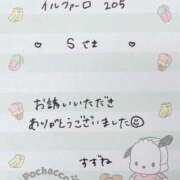 イルファーロ 205
♡ Sさま ♡
お誘いいただき
ありがとうございました
すずね
Pochacco